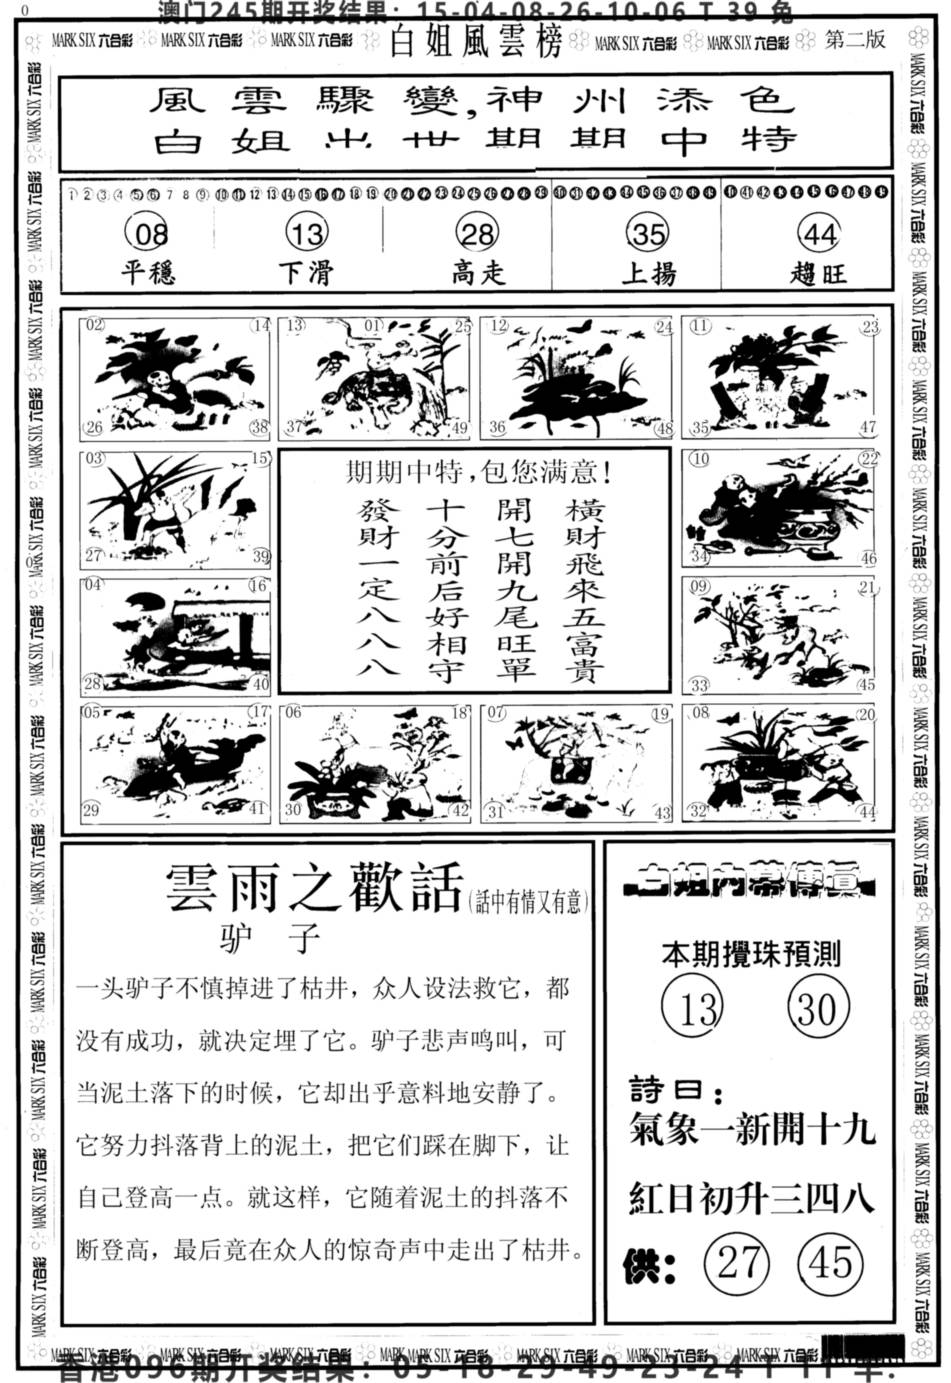 0
澳门245期开奖结果：15-04-08-26-10-06 T 39 兔
MARK SIX 六合彩 MARK SIX 六合彩 MARK SIX 六合彩 白姐風雲榜 MARK SIX 六合彩 MARK SIX 六合彩 第二版
風雲驟變,神州添色
白姐出世期期中特
1 2 3 4 5 6 7 8 9 10 11 12 13 14 15 16 17 18 19 20 21 22 23 24 25 26 27 28 29 30 31 32 33 34 35 36 37 38 39 40 41 42 43 44 45 46 47 48 49
08 13 28 35 44
平穩 下滑 高走 上揚 趨旺
02 14 13 01 25 12 24 11 23
26 38 37 49 36 48 35 47
03 15 10 22
27 39 34 46
04 16 09 21
28 40 33 45
05 17 06 18 07 19 08 20
29 41 30 42 31 43 32 44
期期中特,包您满意!
橫財飛來五富貴
開七開九尾旺單
十分前后好相守
發財一定八八八
雲雨之歡話(話中有情又有意)
驴 子
一头驴子不慎掉进了枯井，众人设法救它，都
没有成功，就决定埋了它。驴子悲声鸣叫，可
当泥土落下的时候，它却出乎意料地安静了。
它努力抖落背上的泥土，把它们踩在脚下，让
自己登高一点。就这样，它随着泥土的抖落不
断登高，最后竟在众人的惊奇声中走出了枯井。
白姐內幕傳真
本期攪珠預測
13 30
詩曰：
氣象一新開十九
紅日初升三四八
供： 27 45
MARK SIX 六合彩 MARK SIX 六合彩 MARK SIX 六合彩 MARK SIX 六合彩 MARK SIX 六合彩 MARK SIX 六合彩
香港096期开奖结果：05-18-29-49-23-24 T 11 羊.